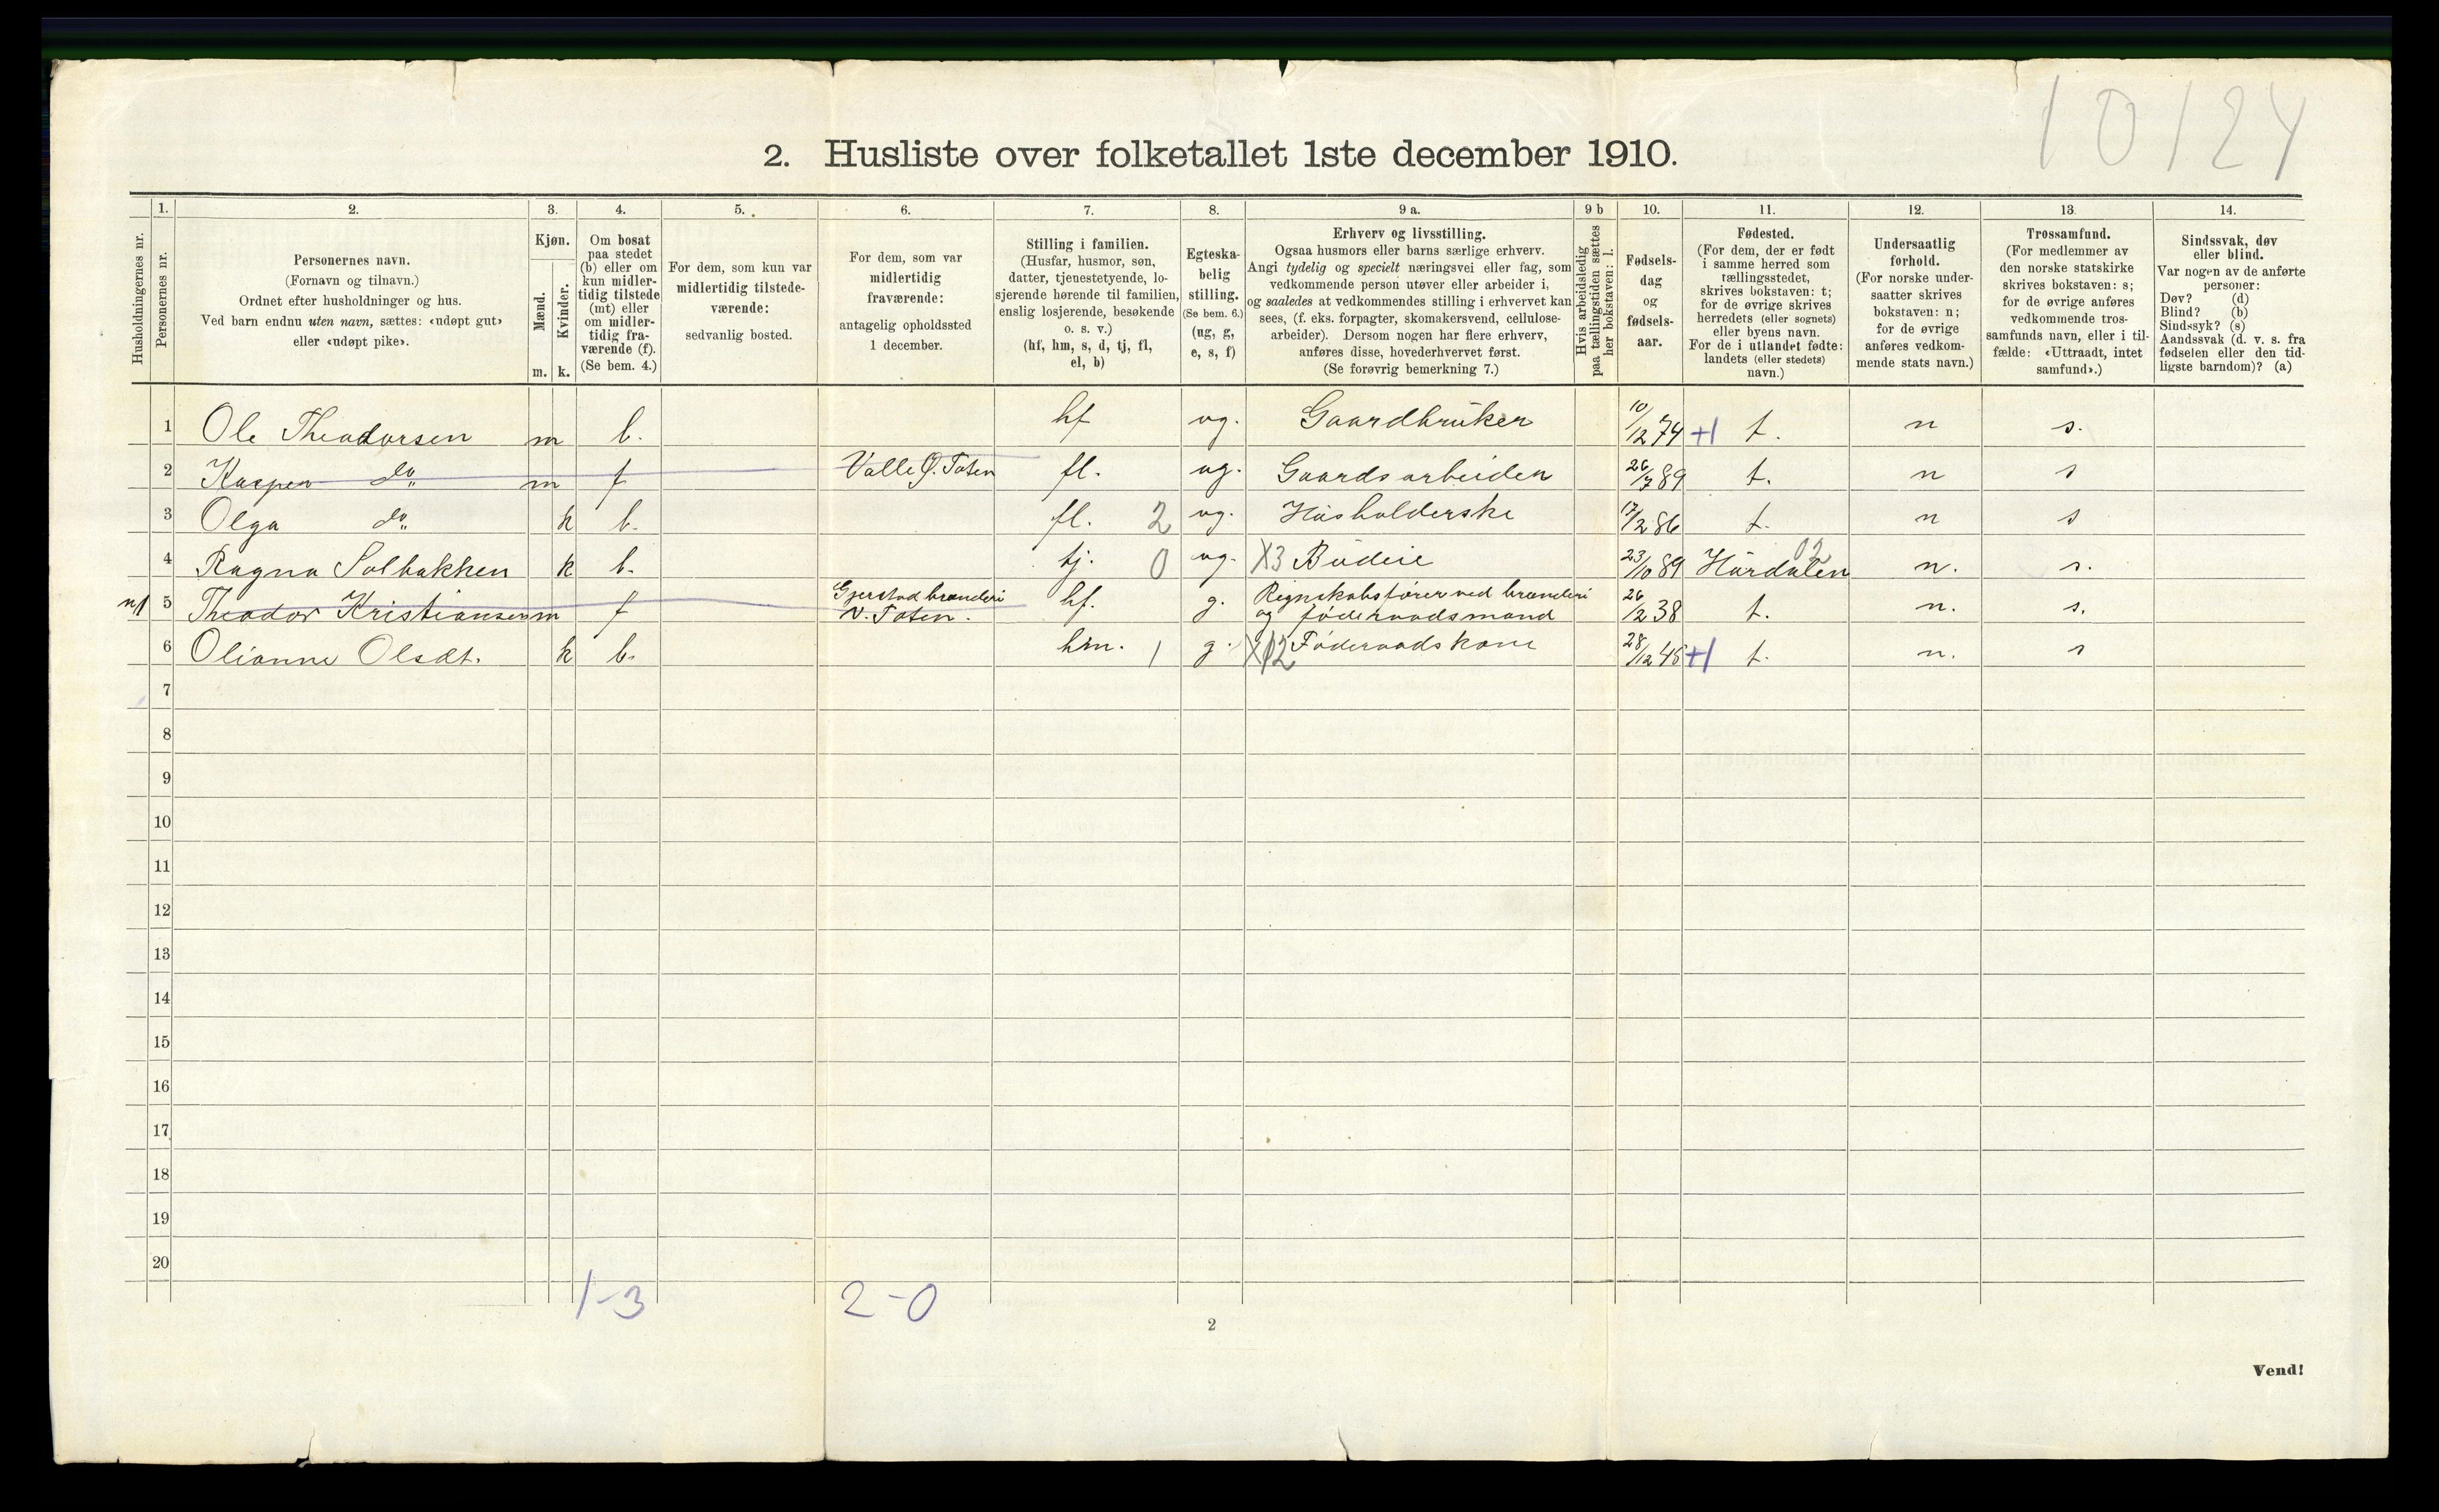 10124
2. Husliste over folketallet 1ste december 1910.
Husholdningernes nr.
1.
Personernes nr.
2.
Personernes navn.
(Fornavn og tilnavn.)
Ordnet efter husholdninger og hus.
Ved barn endnu uten navn, sættes: «udøpt gut»
eller «udøpt pike».
3.
Kjøn.
Mænd.
Kvinder.
m. k.
4.
Om bosat
paa stedet
(b) eller om
kun midler-
tidig tilstede
(mt) eller
om midler-
tidig fra-
værende (f).
(Se bem. 4.)
5.
For dem, som kun var
midlertidig tilstede-
værende:
sedvanlig bosted.
6.
For dem, som var
midlertidig
fraværende:
antagelig opholdssted
1 december.
7.
Stilling i familien.
(Husfar, husmor, søn,
datter, tjenestetyende, lo-
sjerende hørende til familien,
enslig losjerende, besøkende
o. s. v.)
(hf, hm, s, d, tj, fl,
el, b)
8.
Egteska-
belig
stilling.
(Se bem. 6.)
(ug, g,
e, s, f)
9 a.
Erhverv og livsstilling.
Ogsaa husmors eller barns særlige erhverv.
Angi tydelig og specielt næringsvei eller fag, som
vedkommende person utøver eller arbeider i,
og saaledes at vedkommendes stilling i erhvervet kan
sees, (f. eks. forpagter, skomakersvend, cellulose-
arbeider). Dersom nogen har flere erhverv,
anføres disse, hovederhvervet først.
(Se forøvrig bemerkning 7.)
9 b
Hvis arbeidsledig
paa tællingstiden sættes
her bokstaven: l.
10.
Fødsels-
dag
og
fødsels-
aar.
11.
Fødested.
(For dem, der er født
i samme herred som
tællingsstedet,
skrives bokstaven: t;
for de øvrige skrives
herredets (eller sognets)
eller byens navn.
For de i utlandet fødte:
landets (eller stedets)
navn.)
12.
Undersaatlig
forhold.
(For norske under-
saatter skrives
bokstaven: n;
for de øvrige
anføres vedkom-
mende stats navn.)
13.
Trossamfund.
(For medlemmer av
den norske statskirke
skrives bokstaven: s;
for de øvrige anføres
vedkommende tros-
samfunds navn, eller i til-
fælde: «Uttraadt, intet
samfund».)
14.
Sindssvak, døv
eller blind.
Var nogen av de anførte
personer:
Døv? (d)
Blind? (b)
Sindssyk? (s)
Aandssvak (d. v. s. fra
fødselen eller den tid-
ligste barndom)? (a)
1 Ole Theodorsen m b. hf ug. Gaardbruker 10/12 74 +1 t. n s.
2 Kasper do m f Valle Ø. Toten fl. ug. Gaardsarbeider 26/7 89 t. n s
3 Olga do k b. fl. 2 ug. Husholderske 17/2 86 t. n s
4 Ragna Solbakken k b. tj. 0 ug. X3 Budeie 23/10 89 Hurdalen 02 n. s.
5 Theodor Kristiansen m f Gjerstad brænderi V. Toten. hf. g. Regnskabsfører ved brænderi og føderaadsmand 26/12 38 t. n. s.
6 Olianne Olsdt. k b. hm. 1 g. X12 Føderaadskone 28/12 45 +1 t. n. s
7
8
9
10
11
12
13
14
15
16
17
18
19
20
1-3 2-0
2
Vend!